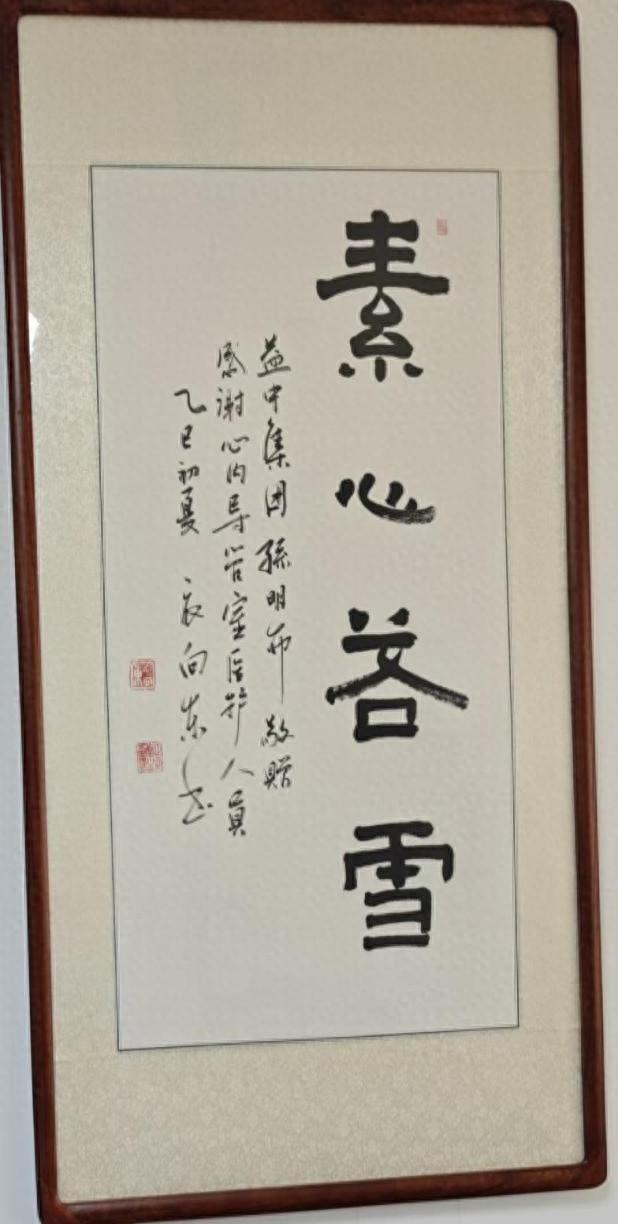 素心若雪
益中集团孫明布敬赠
感谢心内导管室医护人员
乙巳初夏 向东书